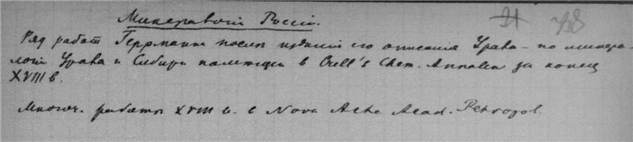 Минералогия России. 21
Ряд работ Германна после издания его описания Урала - по минера-
логии Урала и Сибири помещен в Crell's Chem. Annalen за конец
XVIII в.
Многоч. работы XVIII в. в Nova Acta Acad. Petropol.